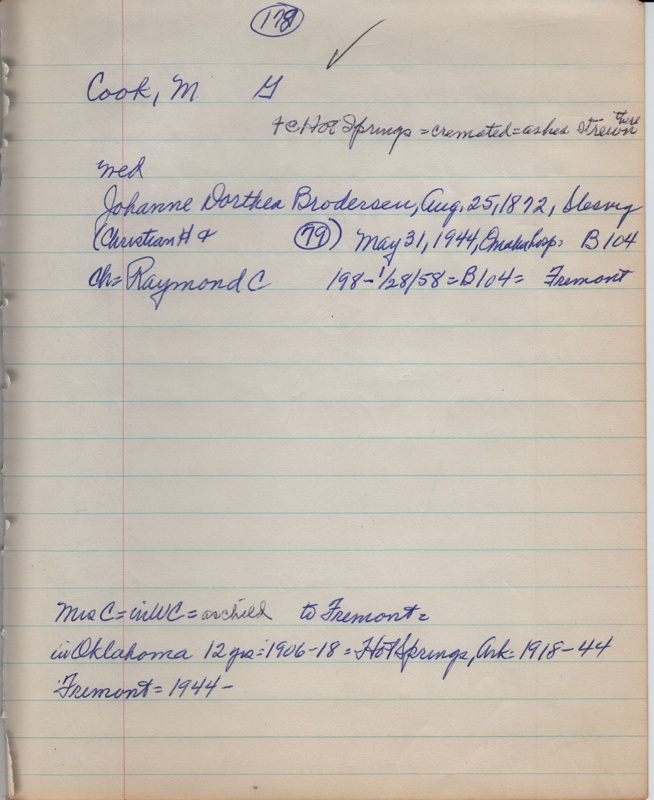 178
Cook, M G
+ c Hot Springs = cremated = ashes strewn there
wed
Johanne Dorthea Brodersen, Aug. 25, 1872, Slesvig
(Christian H + (79) May 31, 1944, Omaha hosp: B 104
ch = Raymond C 198 - 1/28/58 = B104 = Fremont
Mrs C = in WC = as child to Fremont =
in Oklahoma 12 yrs: 1906-18 = Hot Springs, Ark: 1918-44
Fremont = 1944 -